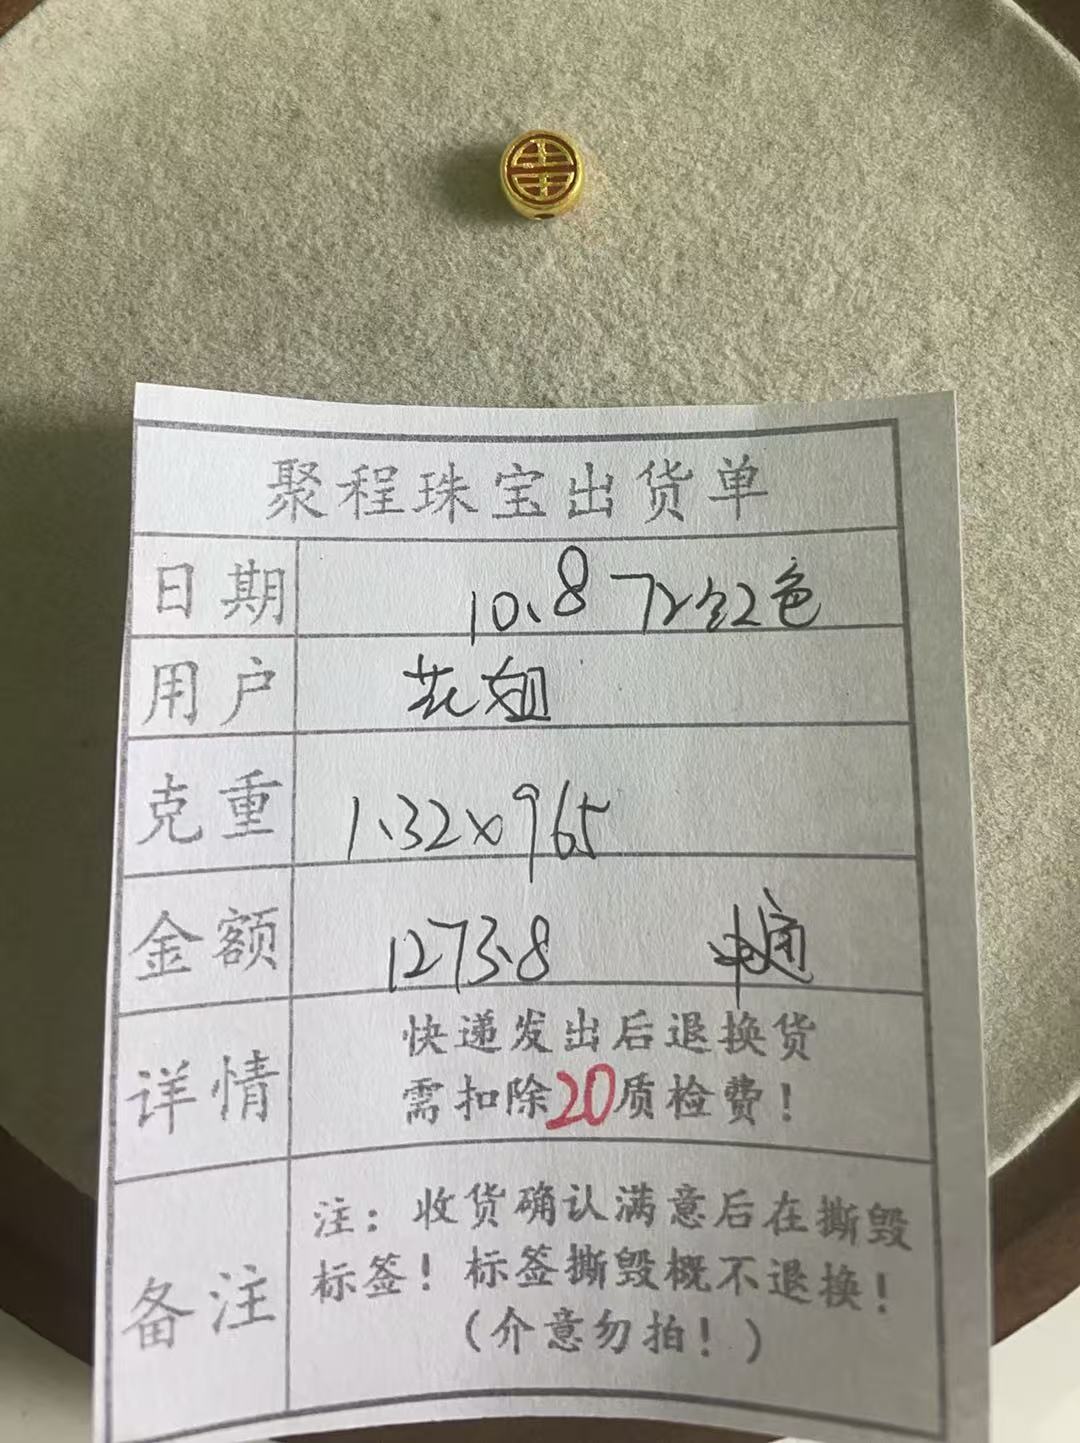 聚程珠宝出货单
日期 10.8 72红色
用户 花姐
克重 1.32×965
金额 1273.8 中通
详情 快递发出后退换货
需扣除20质检费！
备注 注：收货确认满意后在撕毁
标签！标签撕毁概不退换！
（介意勿拍！）